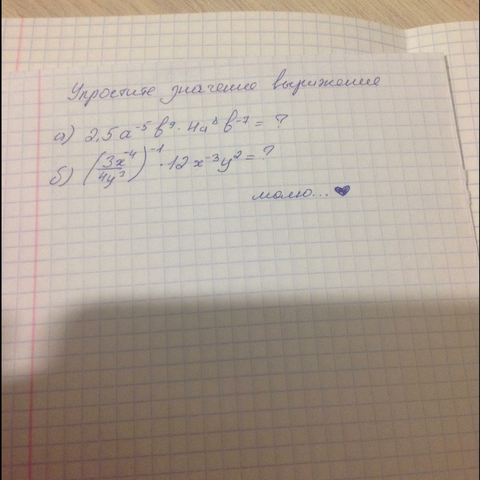 Упростите значение выражение
а) 2,5a⁻⁵b⁹ · 4a⁸b⁻⁷ = ?
б) (3x⁻⁴/4y³)⁻¹ · 12x⁻³y² = ?
молю... ♥